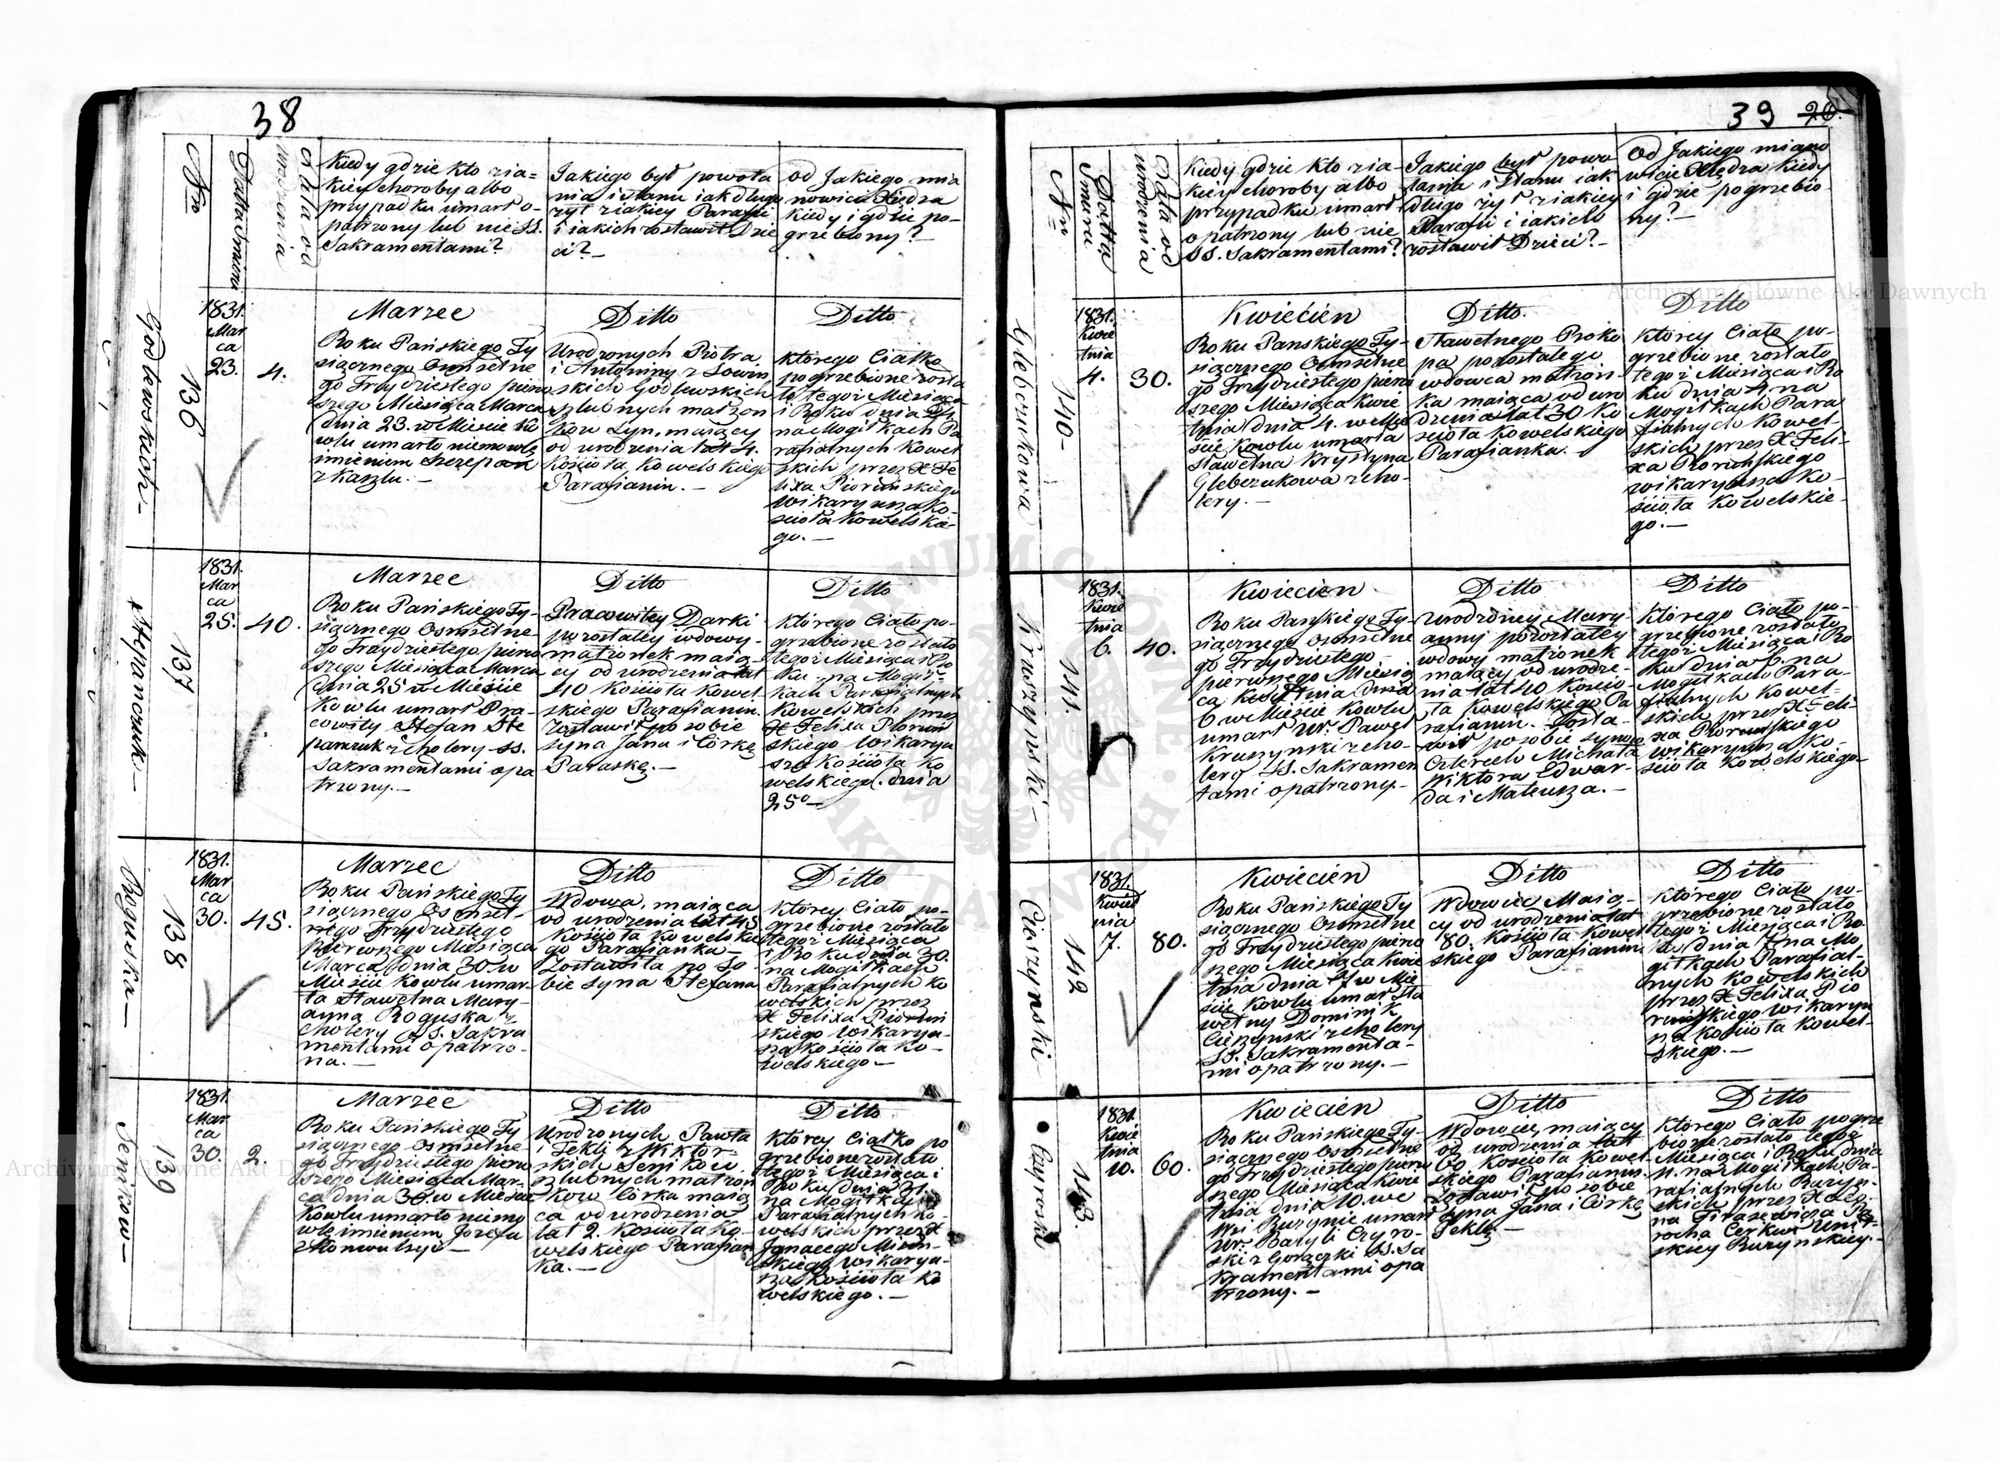 38
Nro
Datta Umarcia
Od
Kiedy gdzie kto zia=
kiey choroby albo
przypadku umarł o-
patrzony lub nie SS.
Sakramentami?
Jakiego był powoła
nia i stanu iak długo
żył z iakiey Parafii
i iakich zostawił Dzie
ci?-
Od Jakiego mia
nowicie Xiędza
kiedy i gdzie po-
grzebiony?-
Godlewskich-
136
1831.
Mar
ca
23.
4.
Marzec
Roku Pańskiego Ty
siącznego Osmsetne
go Trzydziestego pierw
szego Miesiąca Marca
dnia 23. w Mieście Ko
wlu umarło niemowlę
imieniem Szczepan
z Kaszlu.-
Ditto
Urodzonych Piotra
i Antoniny z Sowin
skich Godlewskich
szlubnych małżon
ków Syn, maiący
od urodzenia lat 4.
Kościoła Kowelskiego
Parafianin.-
Ditto
którego Ciałko
pogrzebione zosta
ło tegoż Miesiąca
i Roku dnia 24
na Mogiłkach Pa
rafialnych Kowel
skich przez X Fe
lixa Piorunskiego
Wikaryusza Ko-
ścioła Kowelskie-
go.-
Stepanczuk-
137
1831.
Mar
ca
25.
40.
Marzec
Roku Pańskiego Ty-
siącznego Osmsetne-
go Trzydziestego pierw
szego Miesiąca Marca
dnia 25 w Mieście
Kowlu umarł Pra-
cowity Stefan Ste
panczuk z cholery SS.
Sakramentami opa
trzony.-
Ditto
Pracowitey Darki
pozostałey wdowy-
małżonek maią-
cy od urodzenia lat
40 Kościoła Kowel
skiego Parafianin.
Zostawił po sobie
syna Jana i Córkę
Paraskę.-
Ditto
którego Ciało po-
grzebione zostało
tegoż Miesiąca i Ro
ku na Mogił-
kach Parafialnych
Kowelskich przez
X Felixa Piorun
skiego Wikaryu
sza Kościoła Ko
welskiego. dnia
25o-
Roguska-
138
1831.
Mar
ca
30.
45.
Marzec
Roku Pańskiego Ty
siącznego Osmset-
nego Trzydziestego
pierwszego Miesiąca
Marca dnia 30. w
Mieście Kowlu umar-
ła Sławetna Mary-
anna Roguska z
cholery SS. Sakra
mentami opatrzo-
na.-
Ditto
Wdowa, maiąca
od urodzenia lat 45
Kościoła Kowelskie
go Parafianka-
Zostawiła po So
bie syna Stefana
Ditto
którey Ciało po-
grzebione zostało
tegoż Miesiąca
i Roku dnia 30.
na Mogiłkach
Parafialnych Ko
welskich przez
X Felixa Piorun
skiego Wikaryu-
sza Kościoła Ko-
welskiego-
Senikow-
139
1831.
Mar
ca
30.
2.
Marzec
Roku Pańskiego Ty
siącznego Osmsetne
go Trzydziestego pierw
szego Miesiąca Mar-
ca dnia 30. w Mieście
Kowlu umarło niemo
wlę imieniem Jozefa
z Konwulsyi-
Ditto
Urodzonych Pawła
i Tekli z Wiktor-
skich Senikow
szlubnych małżon
kow Córka maią
ca od urodzenia
lat 2. Kościoła Ko
welskiego Parafian
ka.-
Ditto
którey Ciałko po
grzebione zostało
tegoż Miesiąca i
Roku dnia 31.
na Mogiłkach
Parafialnych Ko-
welskich przez X
Jgnacego
Wikaryu-
sza Kościoła Ko
welskiego.-
39 20.
Nro
Datta
Umarci
Od
Kiedy gdzie kto zia-
kiey choroby albo
przypadku umarł
opatrzony lub nie
SS. Sakramentami?
Jakiego był powo
łania i Stanu iak
długo żył z iakiey
Parafii i iakich
zostawił Dzieci?-
Od Jakiego miano
wicie Xiędza kiedy
i gdzie pogrzebio-
ny?-
Glebczukowa
140-
1831.
Kwie
tnia
4.
30.
Kwiecień
Roku Pańskiego Ty-
siącznego Osmsetne
go Trzydziestego pierw
szego Miesiąca Kwie
tnia dnia 4. w Mie
ście Kowlu umarła
Sławetna Krystyna
Glebczukowa z cho-
lery.-
Ditto.
Sławetnego Proko
pa pozostałego
wdowca małżon-
ka maiąca od uro
dzenia lat 30 Ko
ścioła Kowelskiego
Parafianka.-
Ditto
którey Ciało po-
grzebione zostało
tegoż Miesiąca i Ro
ku dnia 4 na
Mogiłkach Para
fialnych Kowel-
skich przez X Feli-
xa Piorunskiego
Wikaryusza Ko-
ścioła Kowelskie-
go.-
Kruszynski-
141.
1831.
Kwie
tnia
6.
40.
Kwiecien
Roku Pańskiego Ty-
siącznego Osmsetne
go Trzydziestego-
pierwszego Miesią
ca Kwietnia dnia
6 w Mieście Kowlu
umarł Ur. Paweł
Kruszynski z cho-
lery SS. Sakramen
tami opatrzony.-
Ditto
Urodzoney Mary-
anny pozostałey
wdowy małżonek
maiący od urodze-
nia lat 40 Kościo-
ła Kowelskiego Pa
rafianin. Zosta-
wił po sobie synow
Czterech Michała
Wiktora Edwar-
da i Mateusza.-
Ditto
którego Ciało po-
grzebione zostało
tegoż Miesiąca i Ro
ku dnia 6. na
Mogiłkach Para-
fialnych Kowel-
skich przez X Feli-
xa Piorunskiego
Wikaryusza Ko-
ścioła Kowelskiego-
Cieszynski-
142
1831.
Kwiet
nia
7.
80.
Kwiecień
Roku Pańskiego Ty
siącznego Osmsetne
go Trzydziestego pierw
szego Miesiąca Kwie
tnia dnia 7 w Mie
ście Kowlu umarł Sła
wetny Dominik
Cieszynski z cholery
SS. Sakramenta-
mi opatrzony.-
Ditto
Wdowiec Maią-
cy od urodzenia lat
80. Kościoła Kowel
skiego Parafianin
Ditto
którego Ciało po-
grzebione zostało
tegoż Miesiąca i Ro-
ku dnia 7 na Mo
giłkach Parafial-
nych Kowelskich
przez X Felixa Pio
runskiego Wikaryu
sza Kościoła Kowel-
skiego.-
Czyroski
143.
1831.
Kwie
tnia
10.
60.
Kwiecien
Roku Pańskiego Ty-
siącznego Osmsetne
go Trzydziestego pierw
szego Miesiąca Kwie
tnia dnia 10. we
Wsi Buzynie umarł
Ur. Bazyli Czyro-
ski z Gorączki SS. Sa
kramentami opa
trzony.-
Ditto
Wdowiec, maiący
od urodzenia lat
60. Kościoła Kowel-
skiego Parafianin
zostawił po sobie
syna Jana i Córkę
Teklę-
Ditto
którego Ciało pogrze
bione zostało tegoż
Miesiąca i Roku dnia
11. na Mogiłkach Pa-
rafialnych Buzyn-
skich przez X
na Pa-
rocha Cerkwi
skiey Buzynskiey.-
Archiwum Główne Akt Dawnych
Archiwum Główne Akt Dawnych
ARCHIWUM GŁÓWNE AKT DAWNYCH